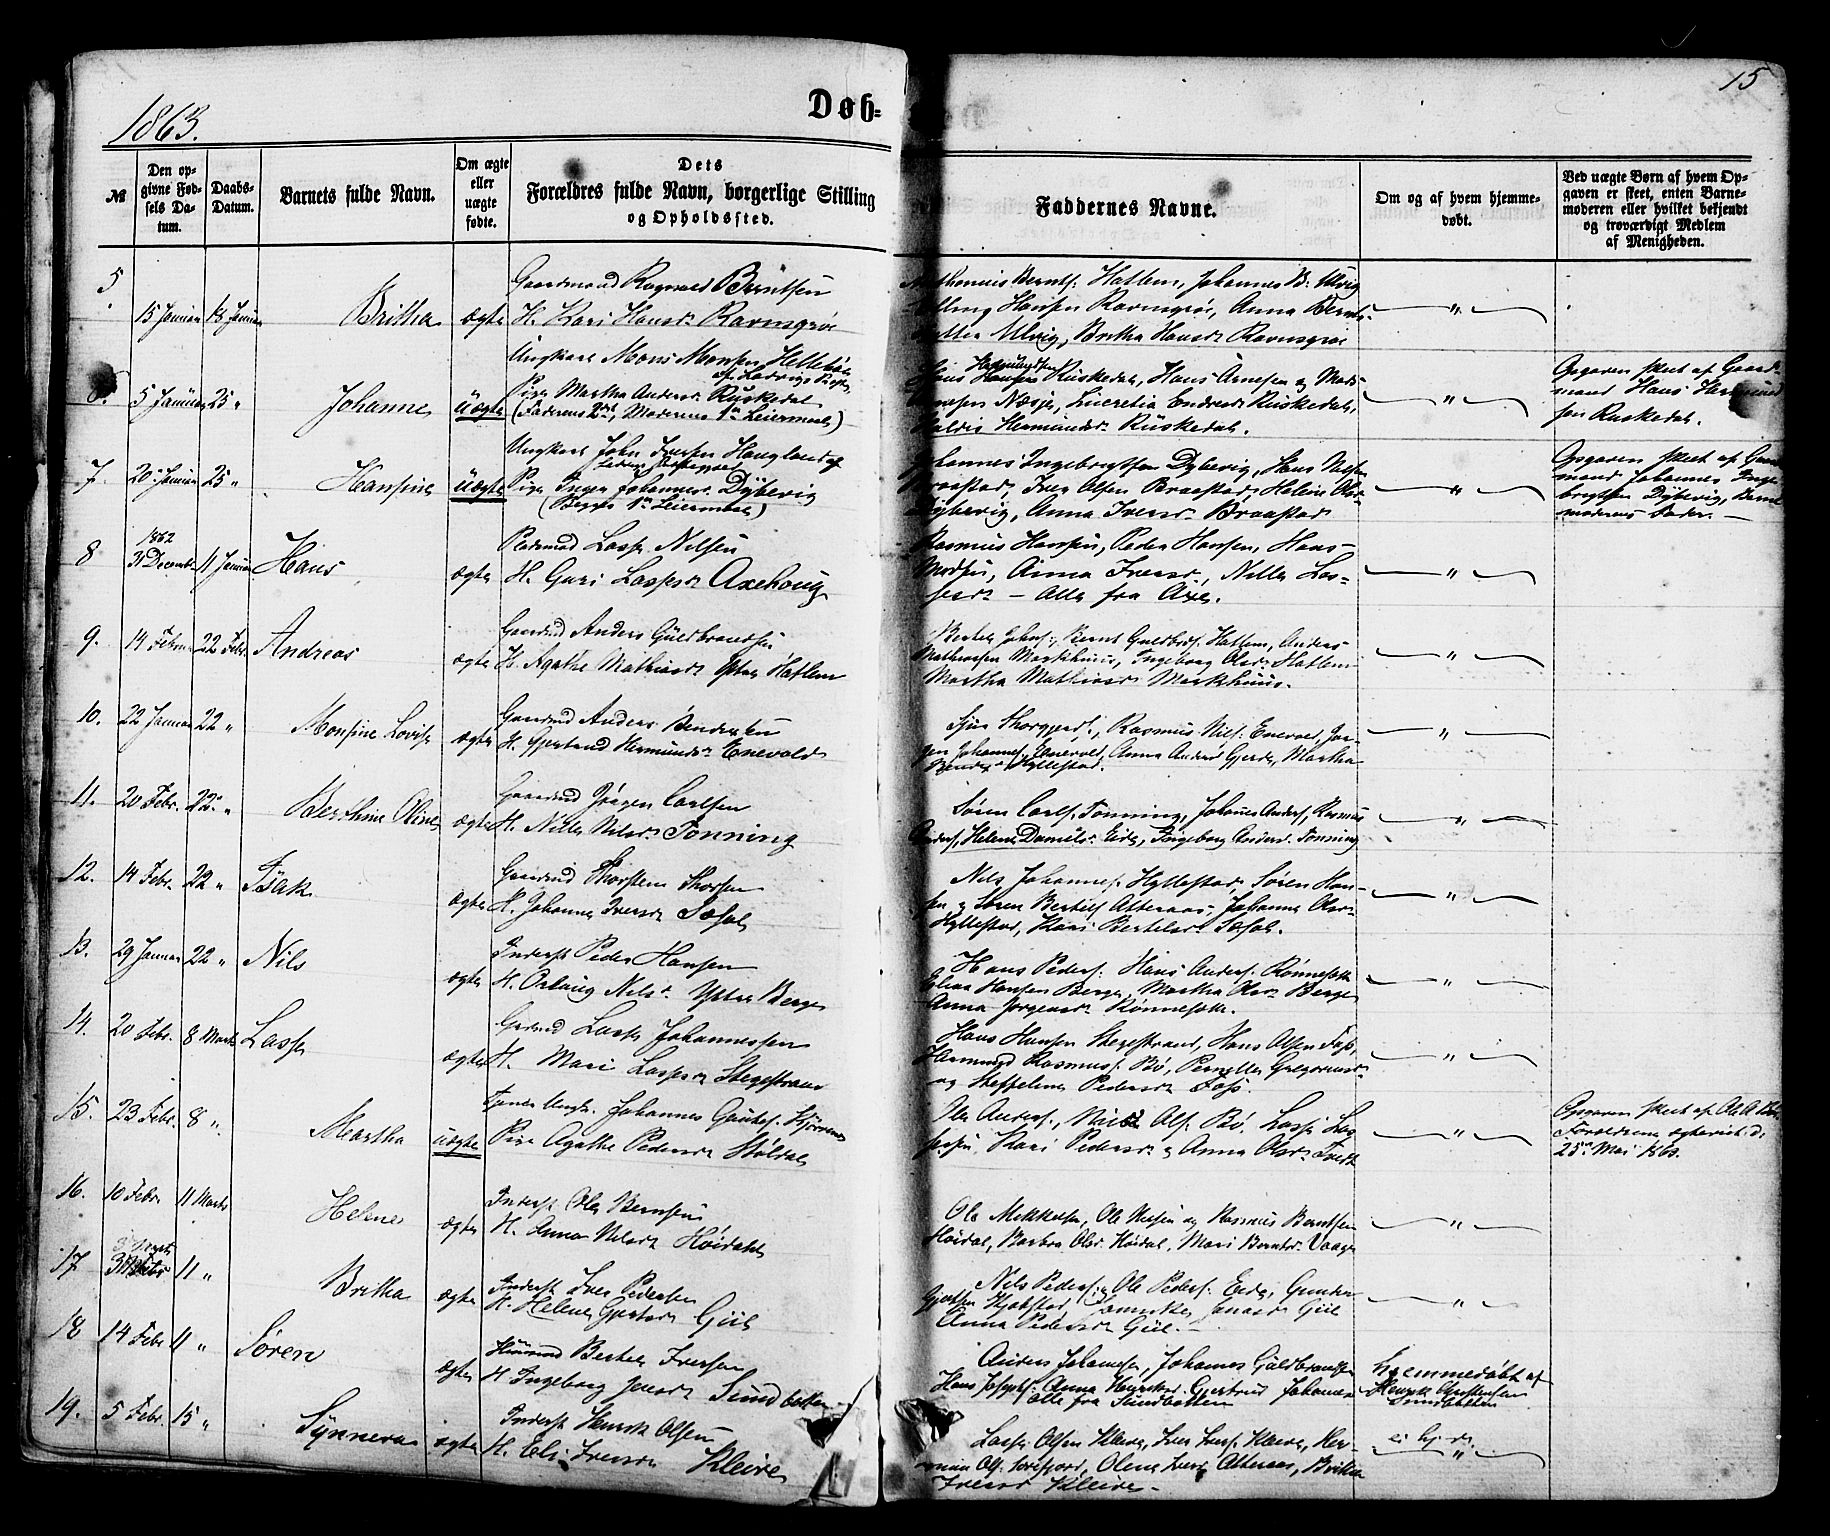 1863.
Døb-
15
№
Den op-
givne Fød-
sels Da-
tum.
Daabs-
Datum.
Barnets fulde Navn.
Om ægte
eller
uægte
fødte.
Dets
Forældres fulde Navn, borgerlige Stilling
og Opholdssted.
Faddernes Navne.
Om og af hvem hjemme-
døbt.
Ved uægte Børn af hvem Op-
gaven er skeet, enten Barne-
moderen eller hvilket bekjendt
og troværdigt Medlem
af Menigheden.
5
15 Januar
Britha
ægte
Gaardmand Ragnvald Berntsen
H. Kari Hansd. Ravnsgrøe
Berntf. Hatlem, Johannes B. Ulvig
Hansen Ravnsgrøe, Anna Bernts-
datter Ulvig, Britha Hansd. Ravnsgrøe
5 Januar 25 "
Johanne
Uægte
Ungkarl Mons Monsen
Pige Martha Andersd. Ruskedal
(Faderens 2det, Moderens 1ste Leiermaal)
Hans Ruskedal, Hans Arnesen og Mads
Lucretia Endresd. Ruskedal,
Hermundsd. Ruskedal.
Opgaven skeet af Gaard-
mand Hans Hermund-
sen Ruskedal.
7.
20 Januar 25 "
Hansine
Uægte
Ungkarl John Iversen Haugland af
Pige Inger Johannesd. Dybevig
(Begges 1ste Leiermaal)
Johannes Ingebrigtsen Dybevig, Hans Nilsen
Braastad, Iver Olsen Braastad, Helene Olsd.
Dybevig, Anna Iversd. Braastad
Opgaven skeet af Gaard-
mand Johannes Inge-
brigtsen Dybevig, Barne-
moderens Fader. —
8
1862
31 December 11 Januar
Hans
ægte
Pladsmd Lasse Nilsen
H. Guri Lassesd. Axehoug
Rasmus Hansen, Peder Hansen, Hans
Madsen, Anna Iversd., Nille Las-
sesd. — Alle fra Axe.
9.
14 Februar 22 Febr.
Andreas
ægte
Gaardmd Anders Guldbrandsen
H. Agathe Mathiasd. Ytre Hatlem
Bertel Johnf., Bernt Guldbrdf. Hatlem, Anders
Mathiassen Markhuus, Ingeborg Olsd. Hatlem
Martha Mathiasd. Markhuus.
10.
22 Januar 22 "
Monsine Lovise
ægte
Gaardmd Anders Bendixsen
H. Gjertrud Hermundsd. Enevold
Rasmus Nilsf. Enevold, Jør-
gen Johannesf. Enevold, Anna Andersd. Gjerde, Martha
Bendixd. Hyllestad.
11.
20 Febr. 22 "
Berthine Oline
ægte
Gaardmd Jørgen Carlsen
H. Nille Nilsd. Tonning
Søren Carlf. Tonning, Johannes Andersf., Rasmus
Andersf., Helene Danielsd. Eide, Ingeborg Andersd. Tonning
12.
14 Febr. 22 "
Isak
ægte
Gaardmd Thorsten Thorsen
H. Johanne Iversd. Sæsol
Nils Johannesf. Hyllestad, Søren Han-
sen, Søren Bertelf. Atteraas, Johanne Olsd.
Hyllestad, Kari Bertelsd. Sæsol.
13.
29 Januar 22 "
Nils
ægte
Inderst Peder Hansen
H. Oslaug Nilsd. Ytre Berge
Hans Pedersf. Hans Andersf. Rønneset
Elias Hansen Berge, Martha Olsd. Berge
Anna Jørgensd. Rønneset.
14.
20 Febr. 8 Marts
Lasse
ægte
Grdmd Lasse Johannessen
H. Mari Lassesd. Stegestrand
Hans Hansen Stegestrand, Hans Olsen Foss,
Hermund Rasmusf. Bø, Pernille Gregoriusd.
og Steffeline Pedersd. Foss.
15.
23 Febr. 8 "
Martha
uægte
Tjener Ungk. Johannes Gautesf.
Pige Agathe Pedersd. Støldal
Ole Andersf., Nils Olsf. Bø, Lasse Las-
sesen, Kari Pedersd. & Anna Olsd.
Opgaven skeet af Ole A.
Forældrene ægteviet d.
25de Mai 1863.
16.
10 Febr. 11 Marts
Helene
ægte
Inderst Ole Berntsen
H. Anna Nilsd. Høidal
Ole Mikkelsen, Ole Nilsen og Rasmus Berntsen
Høidal, Barbra Olsd. Høidal, Mari Berntsd. Vaage
17
11 "
Britha
ægte
Inderst Iver Pedersen
H. Helene Giil
Nils Pedersf., Ole Pedersf. Eide, Gunder
Giil
Anna Pedersd. Giil. —
18
14 Febr 11 "
Søren
ægte
Huusmd Bertel Iversen
H. Ingeborg Jensd. Sundbotten
Anders Johannesen, Johannes Guldbrandsen
Hans Josephf. Anna Gjertrud Johannesd.
Alle fra Sundbotten
hjemmedøbt af
Henrik Christensen
Sundbotten
19.
5 Febr. 15 "
Synneva
ægte
Inderst Henrik Olsen
H. Eli Iversd. Kleive
Lasse Olsen Kleive, Iver Iversf. Kleive, Her-
man Olsf. Sørefjord, Olena Iversd. Atteraas, Britha
Iversd. Kleive. —